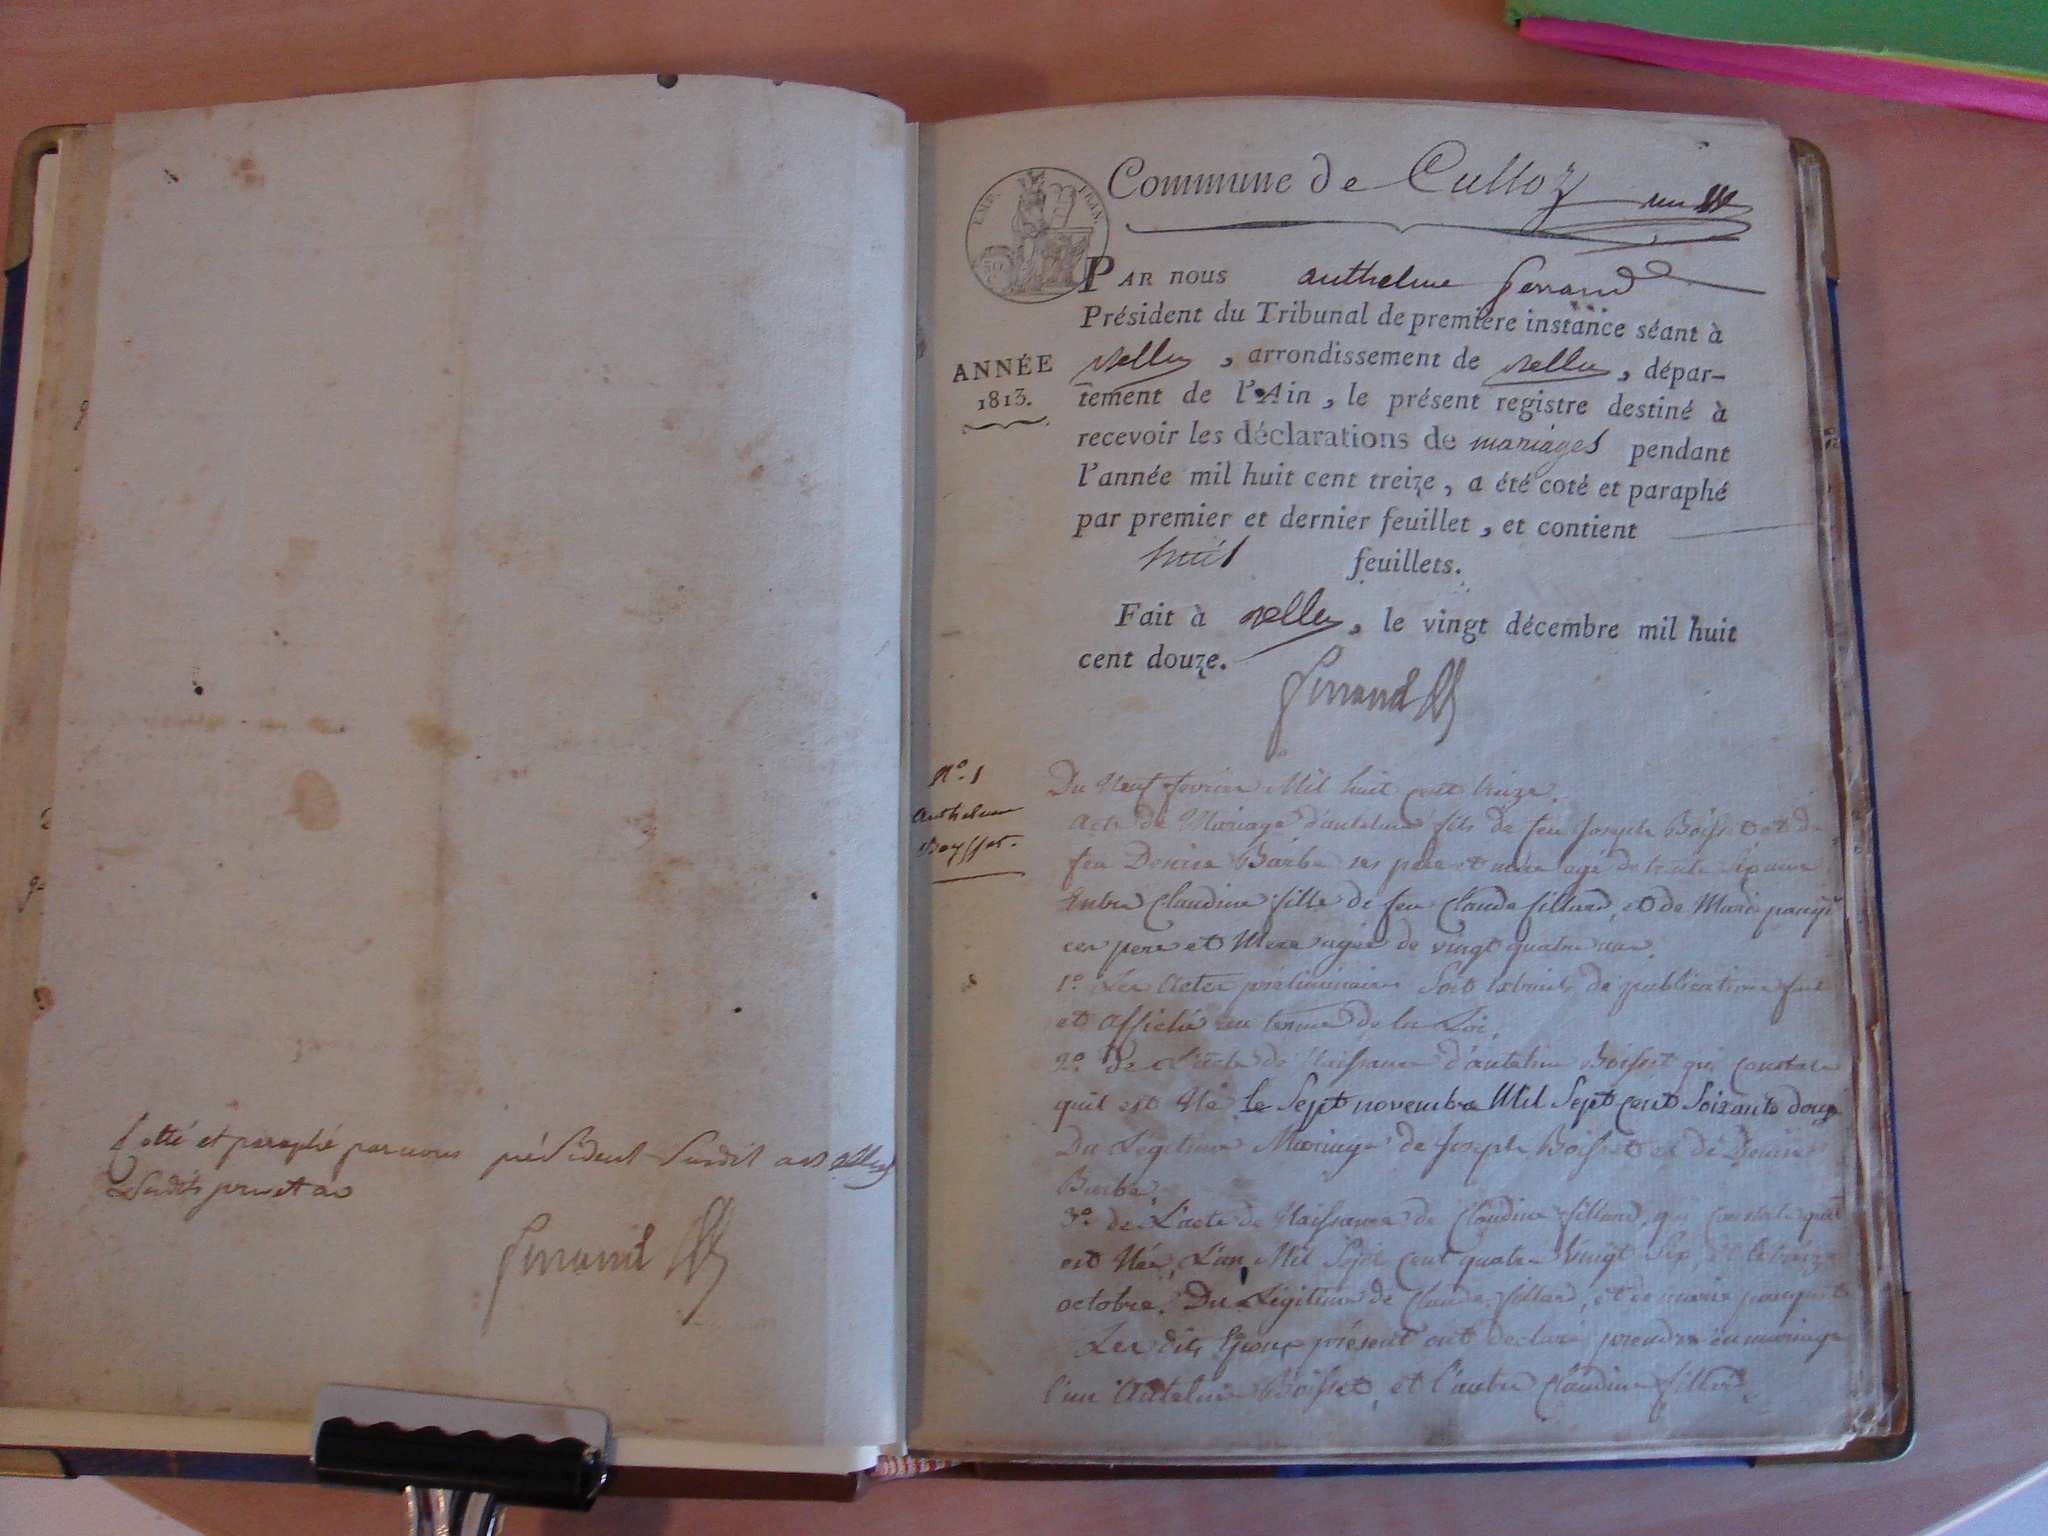 Cotté et paraphé par nous président susdit
Ferrand
EMP. FRAN.
Commune de Culloz
un
PAR nous anthelme ferrand
Président du Tribunal de premiere instance séant à
Belley, arrondissement de Belley, dépar-
tement de l'Ain, le présent registre destiné à
recevoir les déclarations de mariages pendant
l'année mil huit cent treize, a été coté et paraphé
par premier et dernier feuillet, et contient
huit feuillets.
Fait à Belley, le vingt décembre mil huit
cent douze.
Ferrand
ANNÉE
1813.
N.° 1
Anthelme
Boysset.
Du Neuf fevrier Mil huit cent treize.
Acte de Mariage d'antelme fils de feu Joseph Boisset et de
feu Denise Barbe ses pere et mere agé de trente six ans
Entre Claudine fille de feu Claude fillard, et de Marie
ces pere et Mere agée de vingt quatre ans.
1.° Les Actes préliminaires Sont Extraits de publications fait
et affiché au terme de la Loi.
2.° De L'acte de Naissance d'antelme Boisset qui Constate
quil est Né le Sept novembre Mil Sept cent Soixante douze
Du Légitime Mariage de Joseph Boisset et de Denise
Barbe.
3.° de L'acte de Naissance de Claudine fillard, qui Constate quil
est Née, L'an Mil Sept Cent quatre Vingt Six, et le treize
octobre. Du Légitime de Claude fillard, et de marie
Les dits Epoux présent ont declaré prendre en mariage
l'un Antelme Boisset, et l'autre Claudine fillard